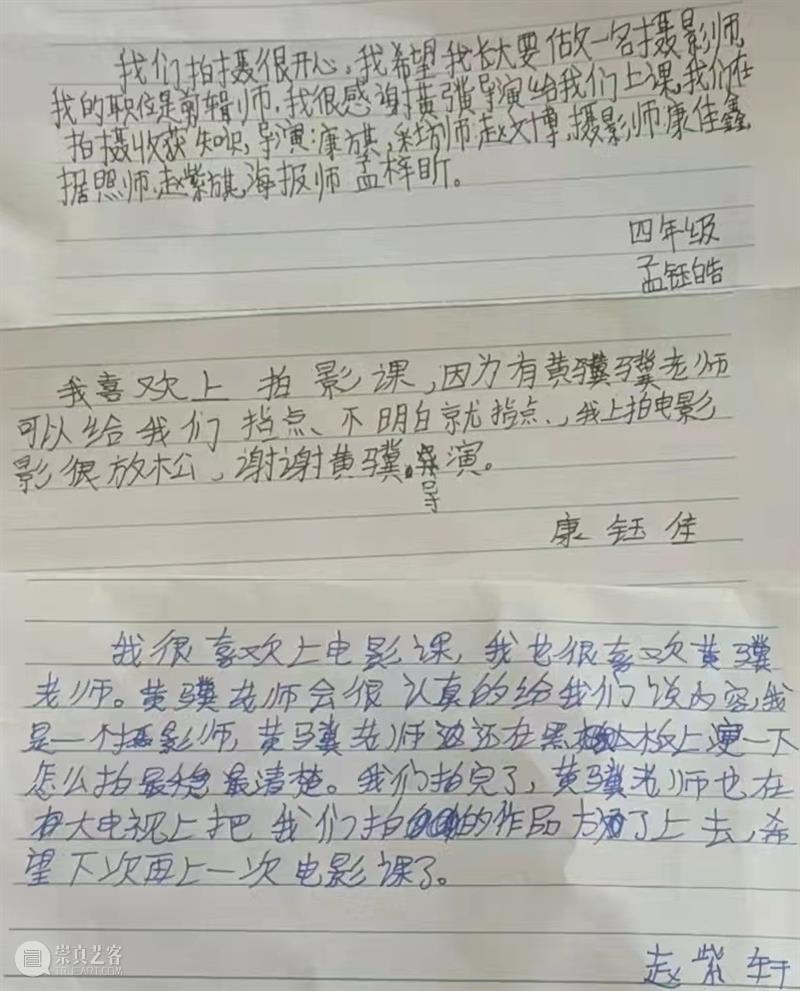 我们拍摄很开心,我希望我长大要做一名摄影师,
我的职位是剪辑师,我很感谢黄骥导演给我们上课,我们在
拍摄收获知识,导演:康旗,赵文博,摄影师康佳鑫,
据照师,赵紫旗,海报师 孟梓昕。
四年级
孟钰皓
我喜欢上 拍影课,因为有黄骥骥老师
可以给我们 指点、不明白就指点、,我上拍电影
影很放松,谢谢黄骥导演。
康钰佳
我很喜欢上电影课,我也很喜欢黄骥
老师。黄骥老师会很认真的给我们说内容,我
是一个摄影师,黄骥老师还在黑板上一下
怎么拍最稳最清楚。我们拍完了,黄骥老师也在
大电视上把我们拍的作品放了上去,希
望下次再上一次电影课了。
赵紫轩
崇真艺客
TRUEART.COM